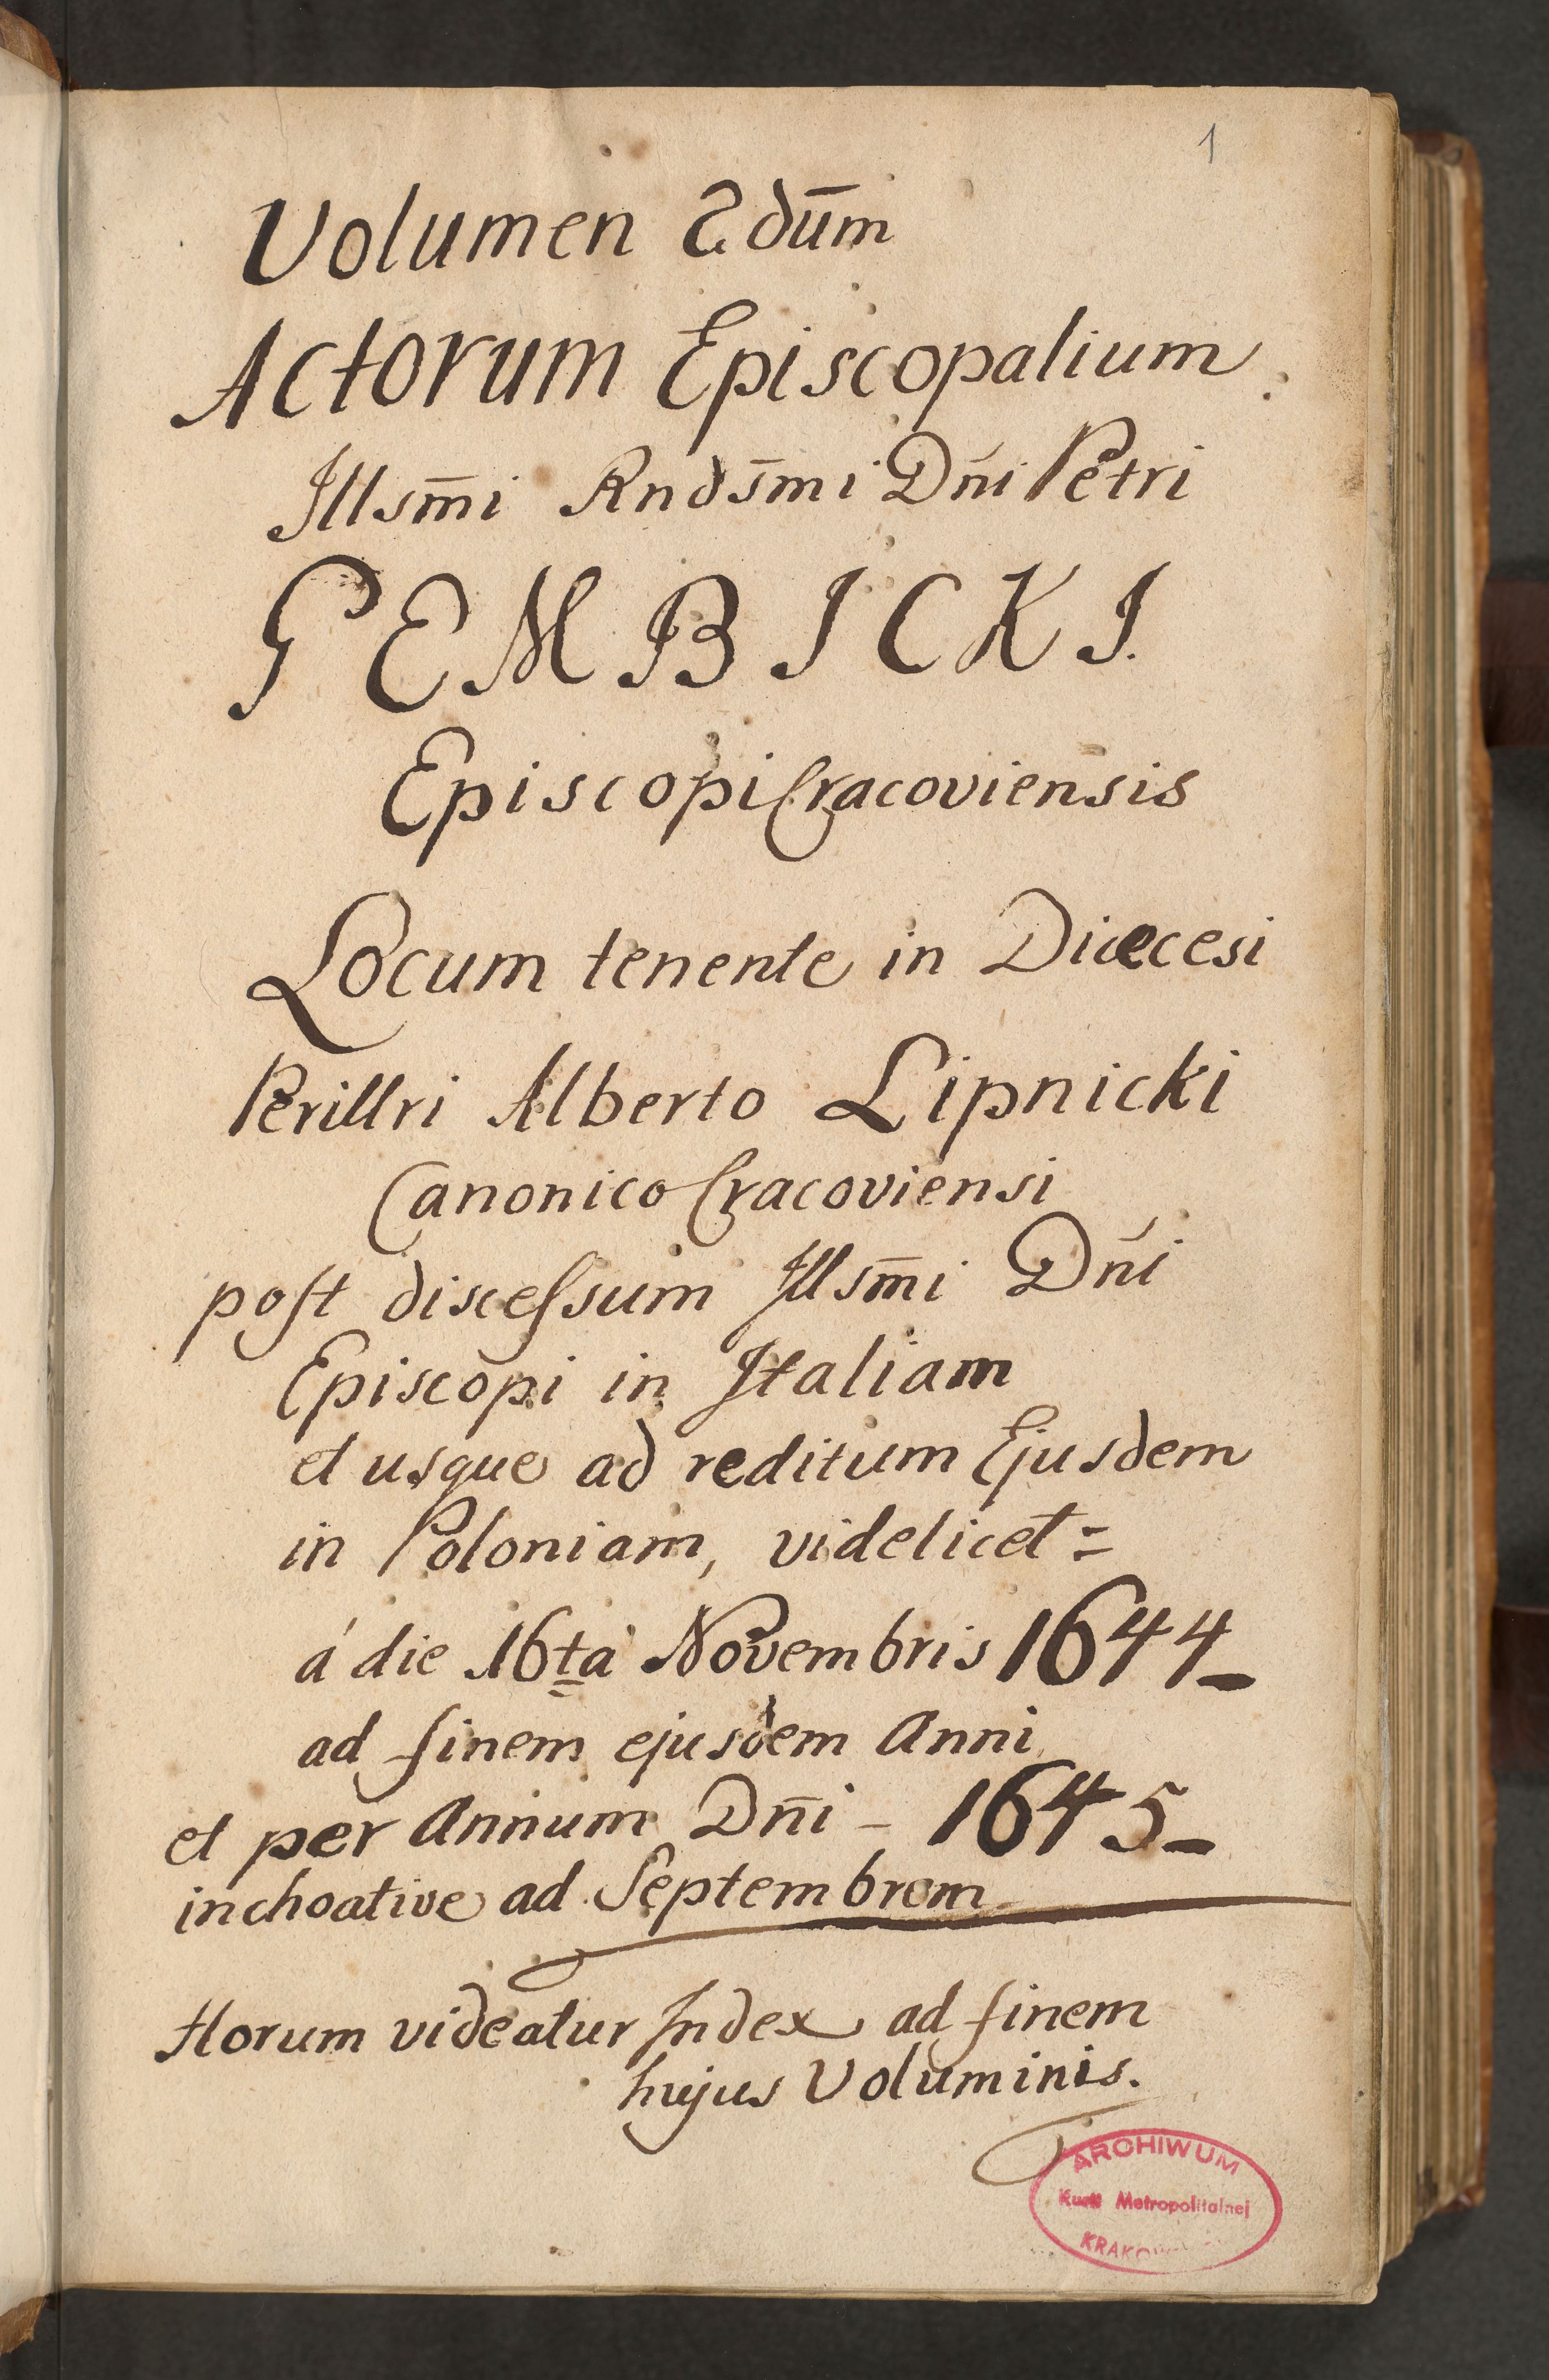 1
Volumen 2dūm
Actorum Episcopalium
Jllsm̄i Rnds̄mi Dn̄i Petri
GEMBICKI.
Episcopi Cracoviensis
Locum tenente in Diœcesi
Perillri Alberto Lipnicki
Canonico Cracoviensi
poſt disceſsum Jllsm̄i Dn̄i
Episcopi in Jtaliam
et usque ad reditum Ejusdem
in Poloniam, videlicet =
á die 16ta Novembris 1644_
ad finem ejusdem Anni
et per Annum Dn̄i - 1645_
inchoative ad Septembrem
Horum videatur Jndex ad finem
hujus Voluminis.
ARCHIWUM
Kurii Metropolitalnej